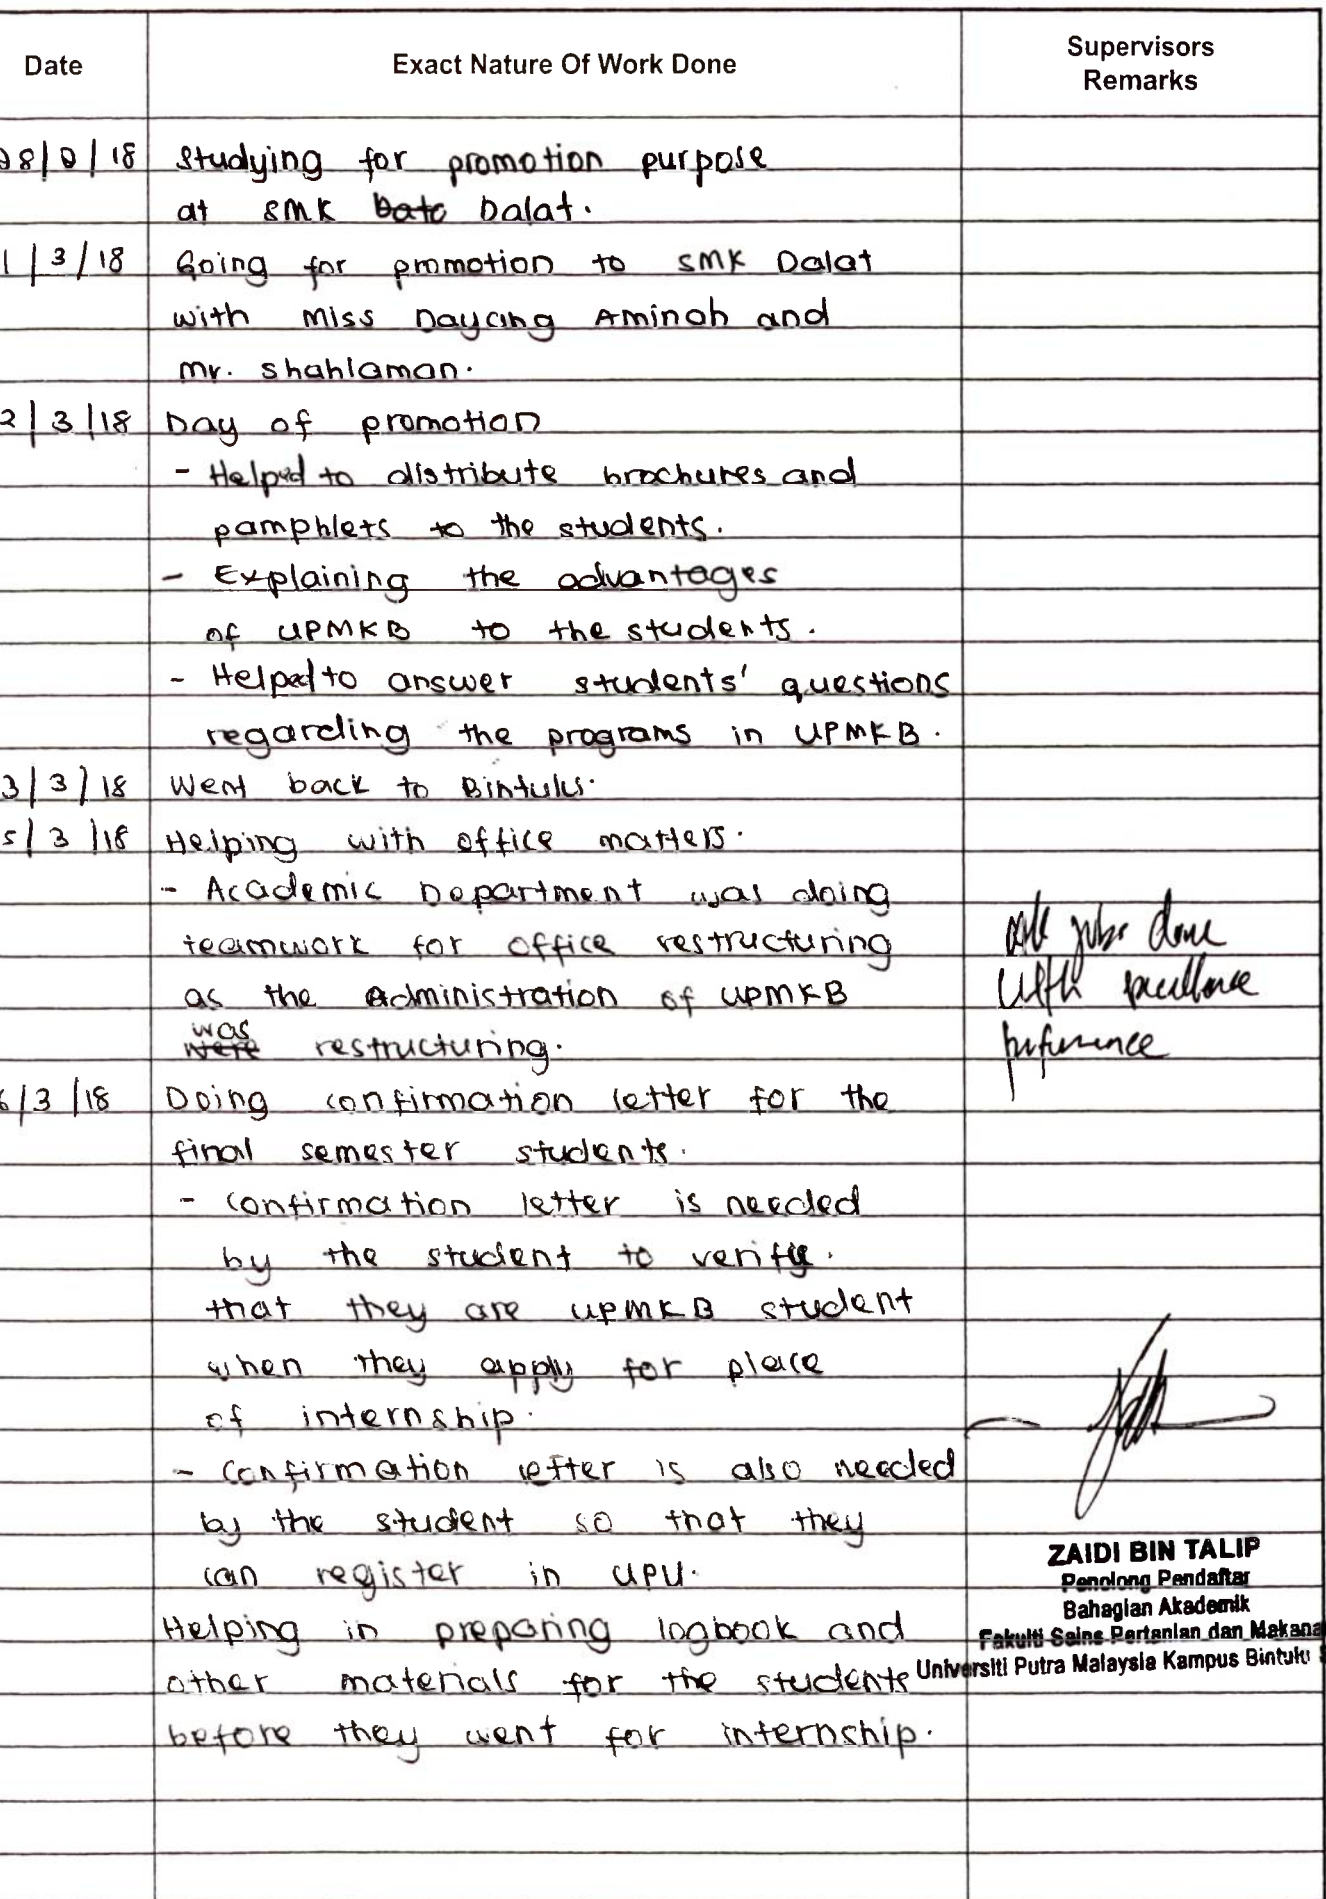 Date Exact Nature Of Work Done Supervisors
Remarks
28/2/18 Studying for promotion purpose
at SMK Dalat.
1/3/18 Going for promotion to SMK Dalat
with Miss Dayang Aminah and
Mr. Shahlaman.
2/3/18 Day of promotion
- Helped to distribute brochures and
pamphlets to the students.
- Explaining the advantages
of UPMKB to the students.
- Helped to answer students' questions
regarding the programs in UPMKB.
3/3/18 Went back to Bintulu.
5/3/18 Helping with office matters.
- Academic Department was doing
teamwork for office restructuring
as the Administration of UPMKB
was restructuring.
All jobs done
with
6/3/18 Doing confirmation letter for the
final semester students.
- Confirmation letter is needed
by the student to verify.
that they are UPMKB student
when they apply for place
of internship.
- Confirmation letter is also needed
by the student so that they
can register in UPU.
Helping in preparing logbook and
other materials for the students
before they went for internship.
ZAIDI BIN TALIP
Penolong Pendaftar
Bahagian Akademik
Fakulti Sains Pertanian dan Makana
Universiti Putra Malaysia Kampus Bintulu